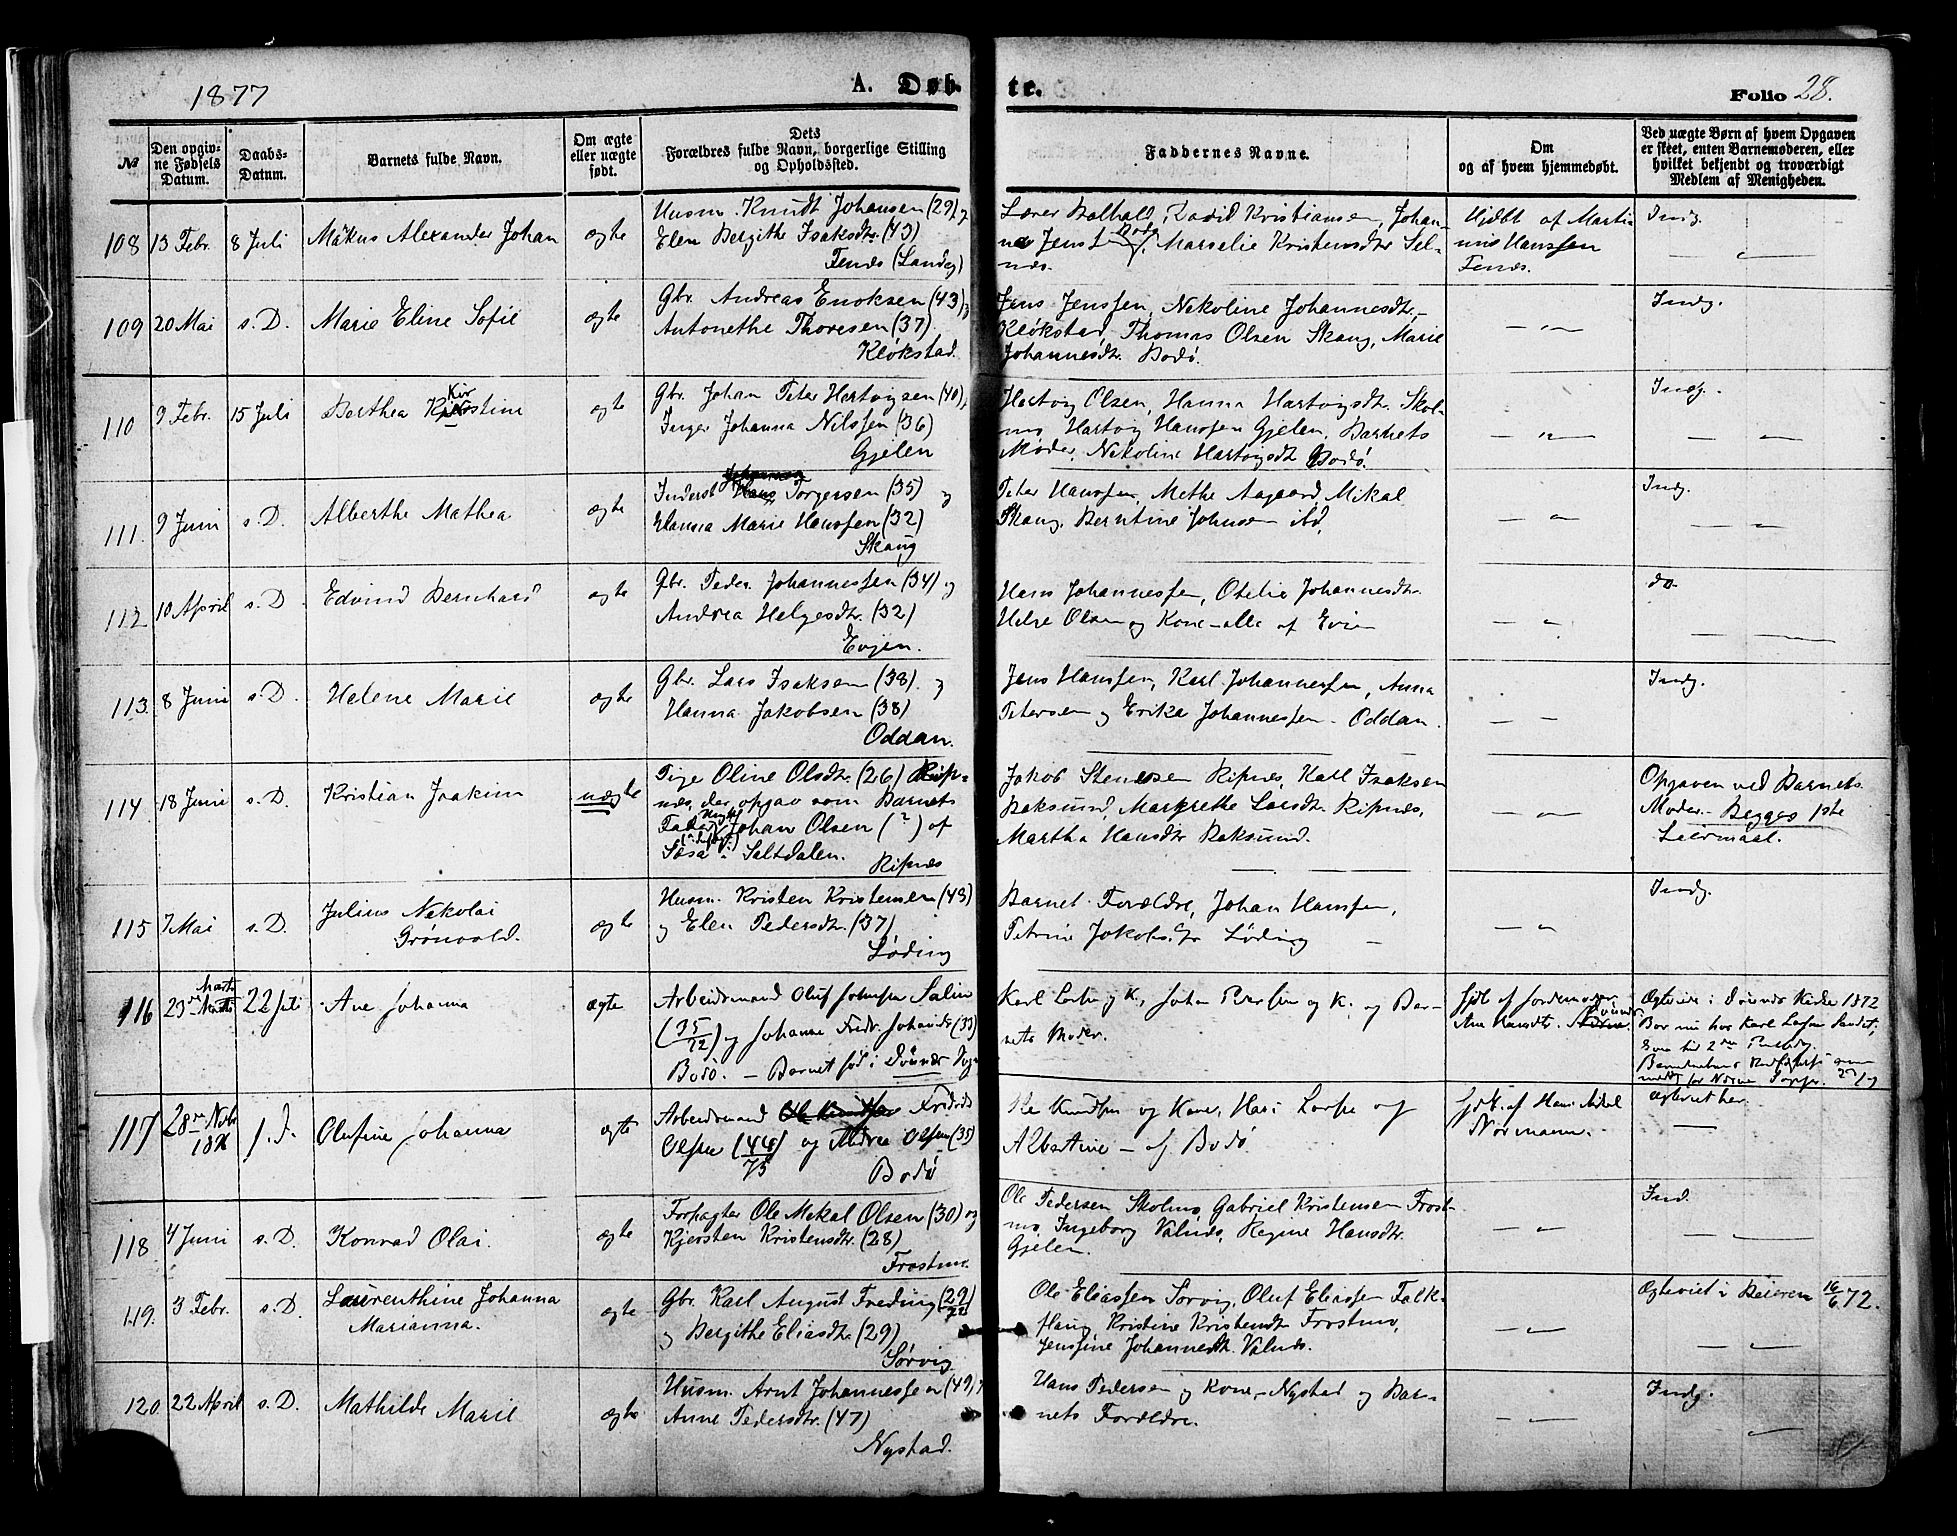 1877
A. Døb- te.
Folio 28.
№
Den opgiv-
ne Fødsels
Datum.
Daabs-
Datum.
Barnets fulde Navn.
Om ægte
eller uægte
født.
Dets
Forældres fulde Navn, borgerlige Stilling
og Opholdssted.
Faddernes Navne.
Om
og af hvem hjemmedøbt.
Ved uægte Børn af hvem Opgaven
er skeet, enten Barnemoderen, eller
hvilket bekjendt og troværdigt
Medlem af Menigheden.
108 13 Febr. 8 Juli Markus Alexander Johan ægte
Husm. Knudt Johansen (29) og
Elen Bergithe Isaksdtr. (43)
Fenes (Landeg)
Kristiansen, Johan-
Jens Bodø, Marselie Kristensdtr Sel-
nes.
Hjdbt af Marti-
nus Hanssen
Fenes.
Indg.
109 20 Mai s. D. Marie Eline Sofie ægte
Gbr. Andreas Enoksen (43) og
Antonethe Thoresen (37)
Kløkstad.
Jens Jenssen, Nekoline Johannesdtr.
Kløkstad, Thomas Olsen Skaug, Marie
Johannesdtr. Bodø.
Indg.
110 9 Febr. 15 Juli Berthea Kirstine ægte
Gbr. Johan Peter Hertvigsen (40),
Inger Johanna Nilssen (36)
Gjelen
Hertvig Olsen, Hanna Hartvigsdtr. Skol-
mo, Hartvig Hanssen Gjelen, Barnets
Moder, Nekoline Hartvigsdtr Bodø.
Indg.
111. 9 Juni s. D. Alberthe Mathea ægte
Inderst Johannes Torgersen (35) og
Hanna Marie Hanssen (32)
Skaug
Peter Hanssen, Methe Aagaard, Mikal
Skaug, Berntine Johnsen ibd.
Indg.
112 10 April s. D. Edvind Bernhard ægte
Gbr. Peder Johannessen (34) og
Andrea Helgesdtr. (32)
Evjen.
Hans Johannessen, Otelie Johannesdtr.
Olsen og Kone - alle af Evjen
do.
113. 8 Juni s. D. Helene Marie ægte
Gbr. Lars Isaksen (38) og
Hanna Jakobsen (38)
Oddan.
Jens Hanssen, Karl Johannessen, Anna
Petersen og Erika Johannessen - Oddan.
Indg.
114 18 Juni s. D. Kristian Joakim uægte
Pige Oline Olsdtr. (26) Rip-
nes, der opgav som Barnets
Fader Johan Olsen (?) af
Sæsa i Saltdalen.
Ripnes
Jakob Stenersen Ripnes, Karl Isaksen
Baksund, Margrethe Larsdtr. Ripnes,
Martha Hansdtr Baksund.
Opgaven ved Barnets
Moder. - Begges 1ste
Leiermaal.
115 7 Mai s. D. Julius Nekolai
Grønvold. ægte
Husm. Kristen Kristensen (43)
og Elen Pedersdtr. (37)
Løding
Barnet Forældre, Johan Hanssen,
Petrine Jakobsdtr Løding
Indg.
116 23de Marts 22 Juli Ane Johanna ægte
Arbeidsmand Oluf Johnsen
(35/72) og Johanne Fredr. (33)
Bodø. - Barnet fød i Dønnæs
Karl og K., Johan og K. og Bar-
nets Moder.
hjdt. af Jordemoder
Ane Hansdtr.
Ægteviet i Dønnæs Kirke 1872
117 28de Novbr
1876 s. D. Olufine Johanna ægte
Arbeidsmand Fredrik
Olsen (44/75) og Andrea Olsen (35)
Bodø
Ole Knudsen og Kone, Hans og
Albertine - af Bodø.
hjdt. af Hans
Normann.
118 4 Juni s. D. Konrad Olai. ægte
Forpagter Ole Mekal Olsen (30) og
Kjersten Kristensdtr. (28)
Frostmo.
Ole Pedersen Skolmo, Gabriel Kristensen Frost-
mo, Ingeborg Valnes, Regine Hansdtr.
Gjelen.
Ind.
119. 3 Febr. s. D. Laurenthine Johanna
Marianna. ægte
Gbr. Karl August Freding (29/72)
og Bergithe Eliasdtr. (29)
Sørvig
Ole Eliassen Sørvig, Oluf Eliassen Falk-
flaug, Kristine Kristensdtr Frostmo,
Jensine Johannesdtr. Valnes.
Ægteviet i Beieren 16/6 72.
120. 22 April s. D. Mathilde Marie ægte
Husm. Arnt Johannessen (49) og
Anne Pedersdtr. (47)
Nystad.
Hans Pedersen og Kone - Nystad og Bar-
nets Forældre.
Indg.